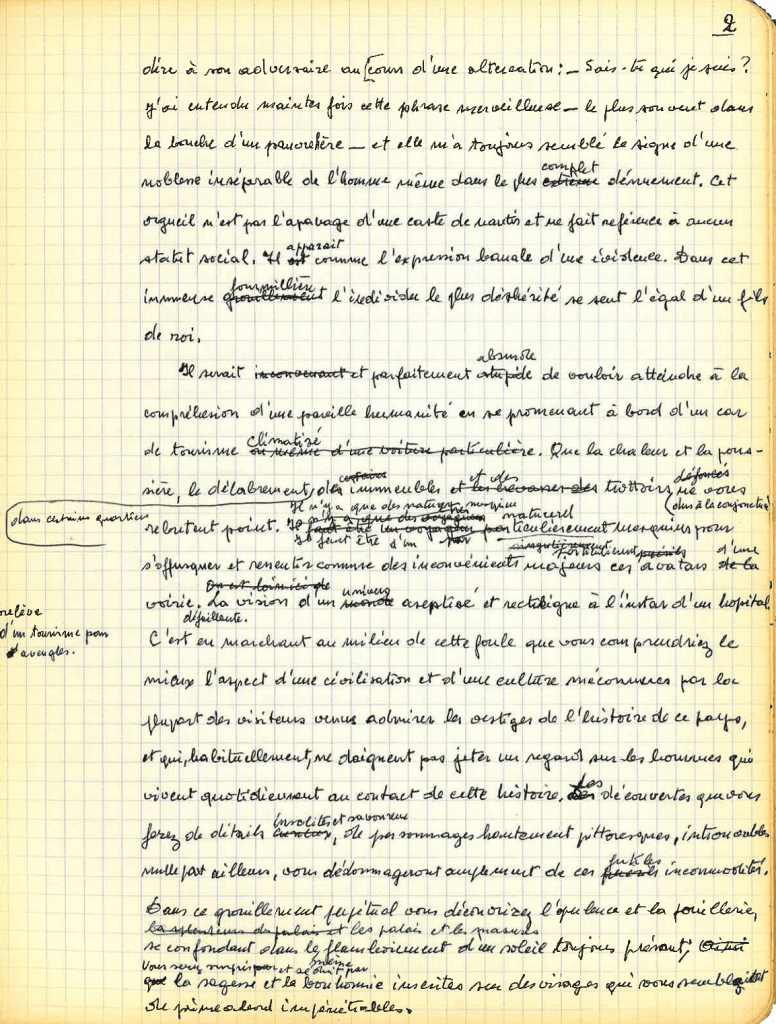 2
dire à son adversaire au cours d'une altercation : — Sais-tu qui je suis ?
J'ai entendu maintes fois cette phrase merveilleuse — le plus souvent dans
la bouche d'un pauvre hère — et elle m'a toujours semblé le signe d'une
complet
noblesse inséparable de l'homme même dans le plus extrême dénuement. Cet
orgueil n'est pas l'apanage d'une caste de nantis et ne fait référence à aucun
apparait
statut social. Il est comme l'expression banale d'une évidence. Dans cet
fourmillière
immense grouillement l'individu le plus déshérité se sent l'égal d'un fils
de roi.
absurde
Il serait inconvenant et parfaitement stupide de vouloir atteindre à la
compréhension d'une pareille humanité en se promenant à bord d'un car
climatisé
de tourisme ou même d'une voiture particulière. Que la chaleur et la pous-
certains et des défoncés
sière, le délabrement, des immeubles et les crevasses des trottoirs, ne vous
dans certains quartiers
dus à la conjoncture
Il n'y a que des natures mesquines
rebutent point. Il faut être un voyageur particulièrement mesquin pour
naturel
Il faut être d'un
singulièrement
d'une
s'offusquer et ressentir comme des inconvénients majeurs ces avatars de la
univers
voirie. La vision d'un monde aseptisé et rectiligne à l'instar d'un hopital
défaillante.
relève
d'un tourisme pour
aveugles.
C'est en marchant au milieu de cette foule que vous comprendriez le
mieux l'aspect d'une civilisation et d'une culture méconnues par la
plupart des visiteurs venus admirer les vestiges de l'histoire de ce pays,
et qui, habituellement, ne daignent pas jeter un regard sur les hommes qui
Les
vivent quotidiennement au contact de cette histoire. Les découvertes que vous
insolites et savoureux
ferez de détails curieux, de personnages hautement pittoresques, introuvables
futiles
nulle part ailleurs, vous dédommageront amplement de ces incommodités.
Dans ce grouillement perpétuel vous découvrirez l'opulence et la pouillerie,
la splendeur du palais et les palais et les masures
se confondant dans le flamboiement d'un soleil toujours présent,
Vous serez surpris et séduit par
même
que la sagesse et la bonhomie inscrites sur des visages qui vous semblaient
de prime abord impénétrables.